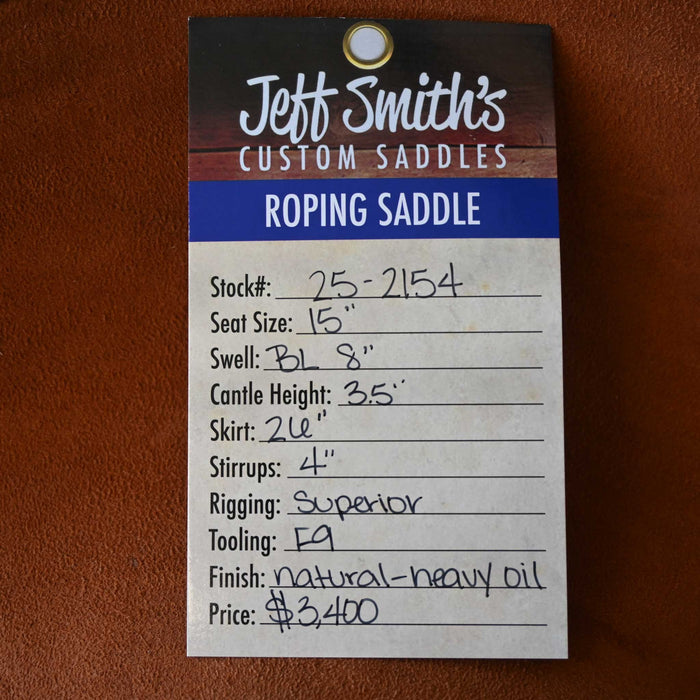 Jeff Smith's
CUSTOM SADDLES
ROPING SADDLE
Stock#: 25-2154
Seat Size: 15"
Swell: BL 8"
Cantle Height: 3.5"
Skirt: 26"
Stirrups: 4"
Rigging: Superior
Tooling: F9
Finish: natural-heavy oil
Price: $3,400